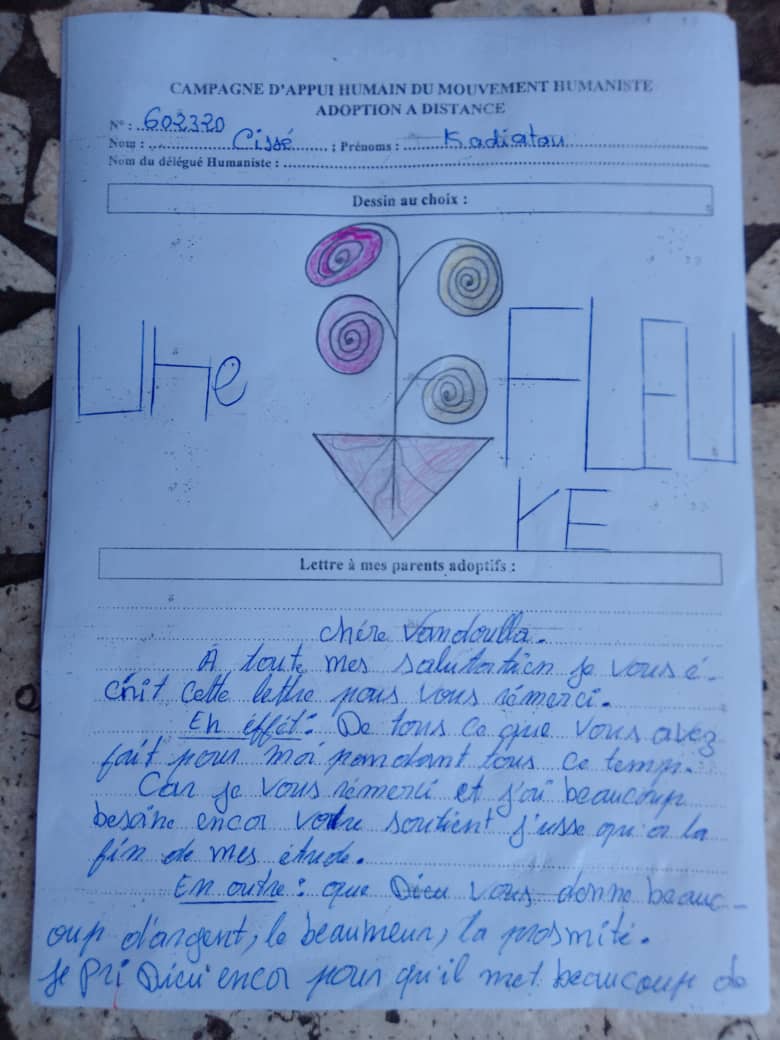 CAMPAGNE D'APPUI HUMAIN DU MOUVEMENT HUMANISTE
ADOPTION A DISTANCE
N° : 602320
Nom : Cissé ; Prénoms : Kadiatou
Nom du délégué Humaniste :
Dessin au choix :
Une FLEU
RE
Lettre à mes parents adoptifs :
chère Vandoulla.
A toute mes salutation je vous é-
crit cette lettre pous vous rémerci.
En éffét : De tous ce que vous avez
fait pour moi pendant tous ce temp.
Car je vous rémerci et j'ai beaucoup
besoine encor votre soutient j'usse qu'a la
fin de mes étude.
En outre : que Dieu vous donne beauc-
oup d'argent, le beaumeur, la prosmité.
Je Pri Dieu encor pour qu'il met beaucoup de